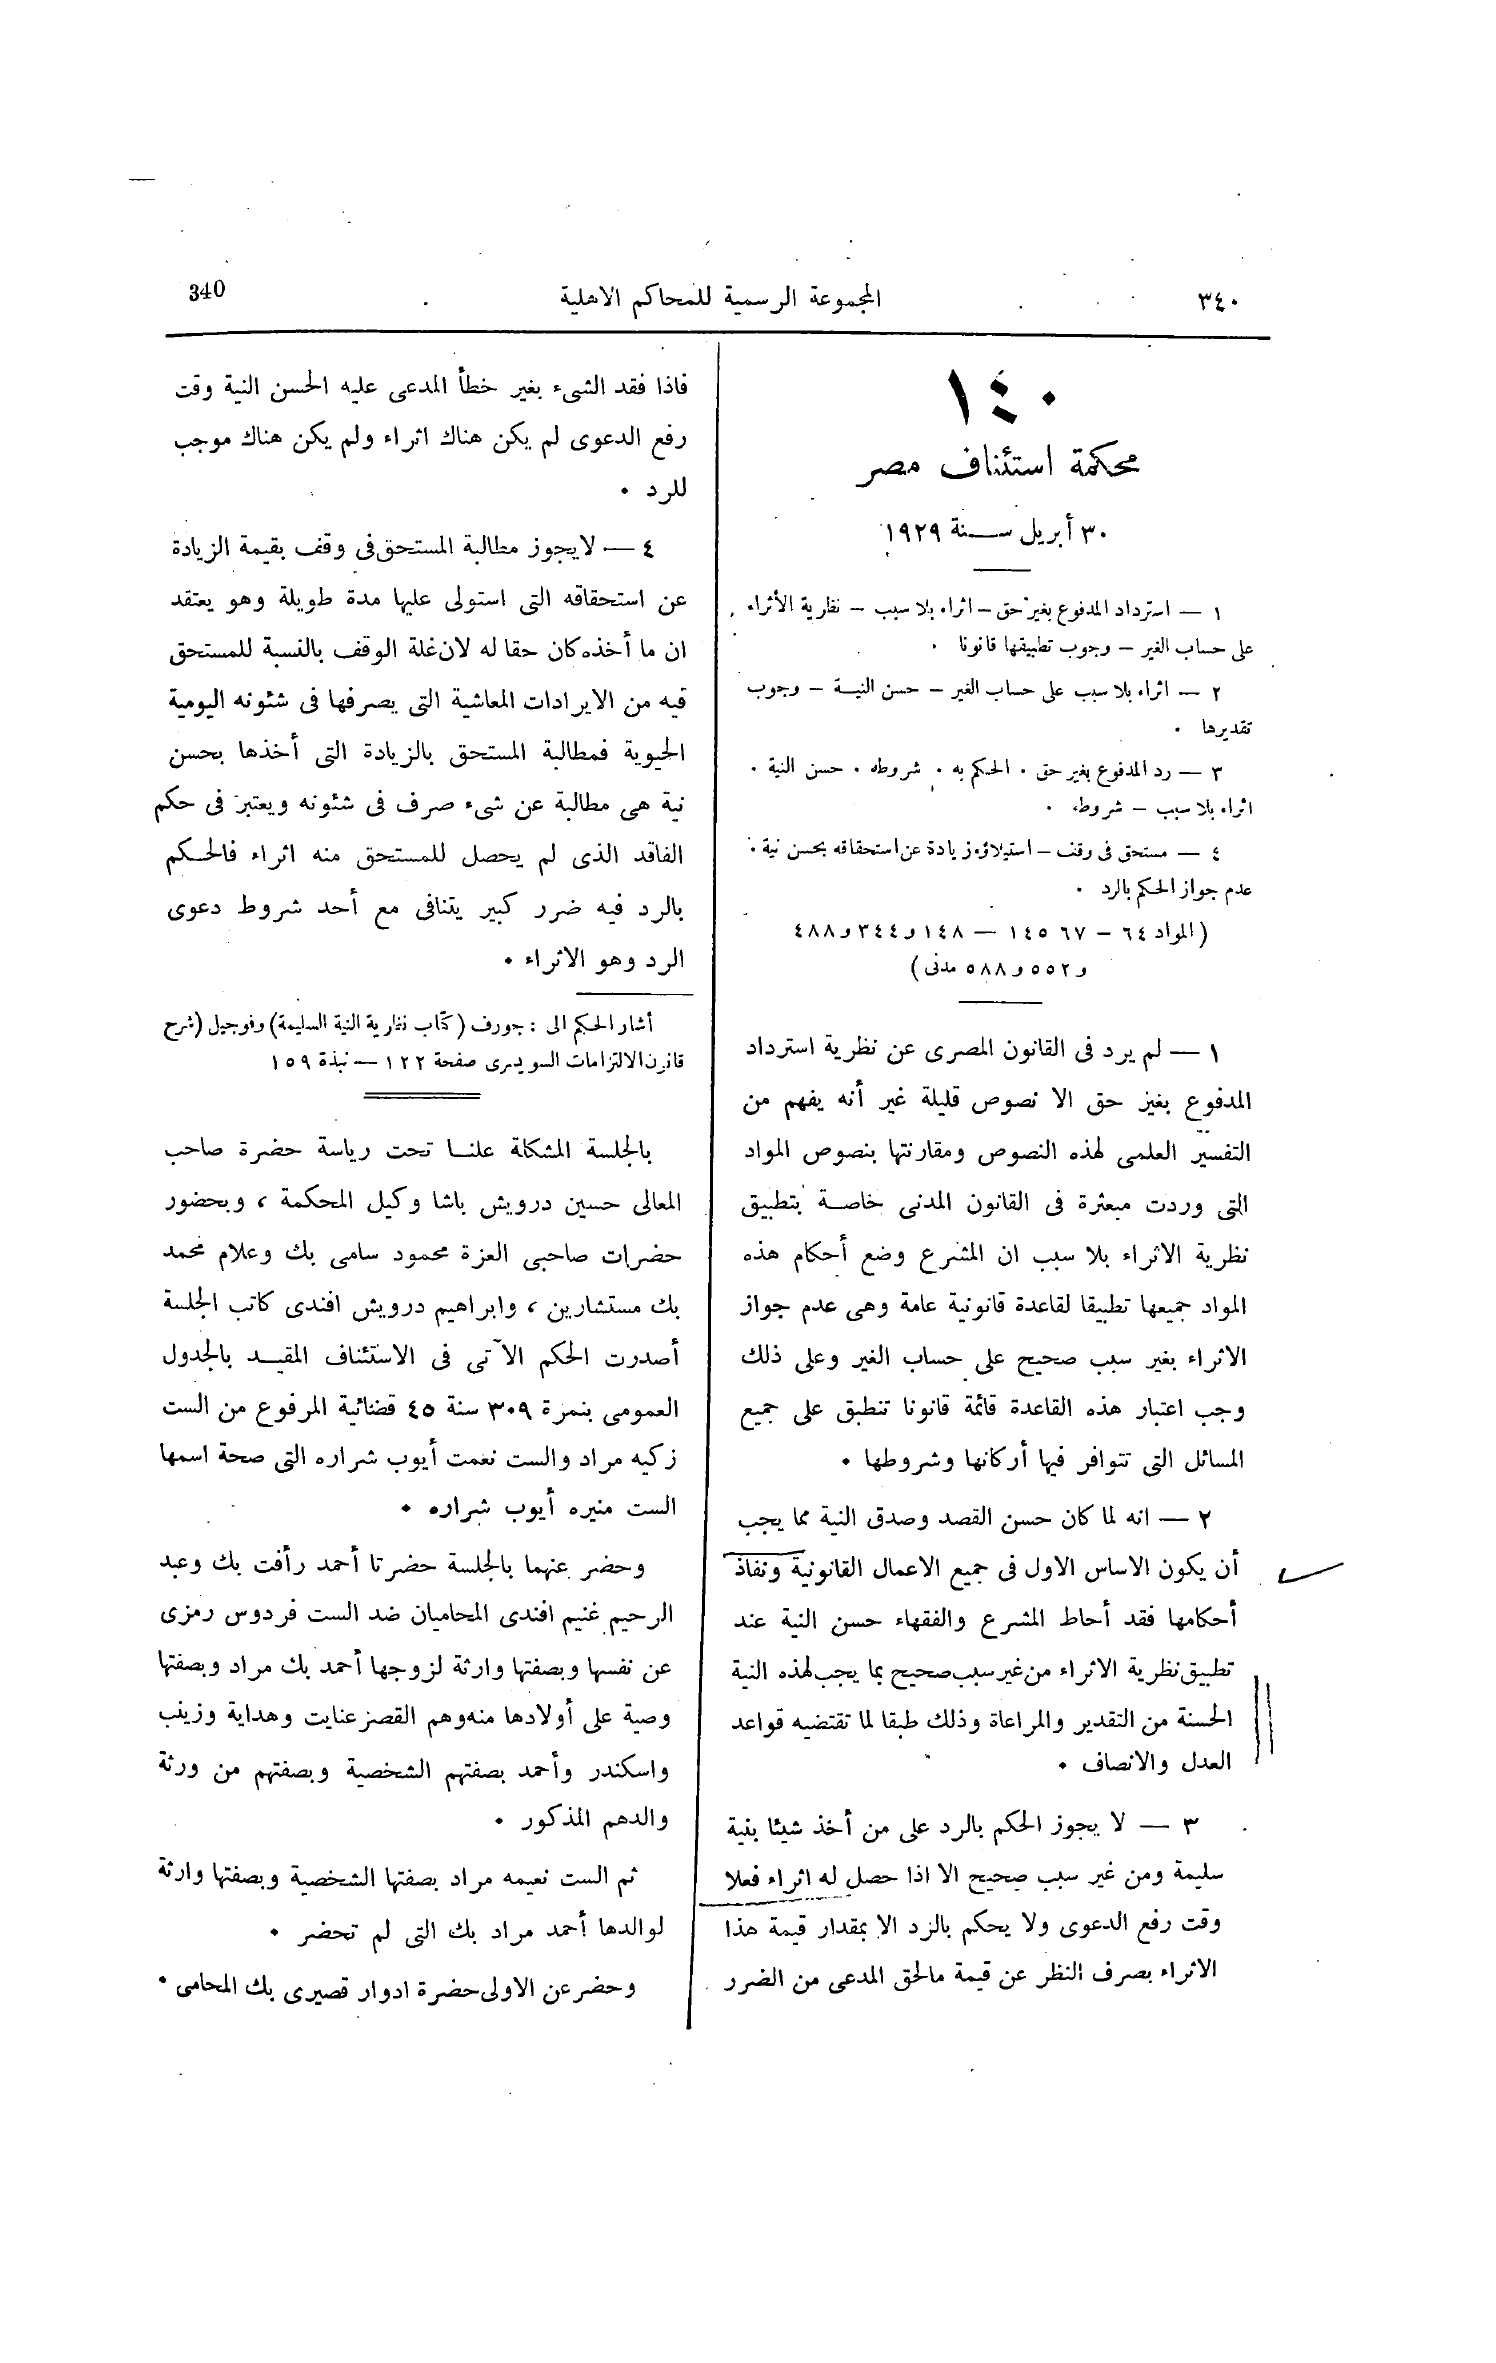 ٣٤٠
المجموعة الرسمية للمحاكم الاهلية
340
١٤٠
محكمة استئناف مصر
٣٠ أبريل سنة ١٩٢٩
١ — استرداد المدفوع بغير حق – اثراء بلا سبب – نظرية الأثراء
على حساب الغير – وجوب تطبيقها قانونا .
٢ — اثراء بلا سبب على حساب الغير – حسن النية – وجوب
تقديرها .
٣ — رد المدفوع بغير حق . الحكم به . شروطه . حسن النية .
اثراء بلا سبب – شروطه .
٤ — مستحق فى وقف – استيلاؤه زيادة عن استحقاقه بحسن نية .
عدم جواز الحكم بالرد .
( المواد ٦٤ – ٦٧ ١٤٥ — ١٤٨ و ٣٤٤ و ٤٨٨
و ٥٥٢ و ٥٨٨ مدنى )
١ — لم يرد فى القانون المصرى عن نظرية استرداد
المدفوع بغير حق الا نصوص قليلة غير أنه يفهم من
التفسير العلمى لهذه النصوص ومقارنتها بنصوص المواد
التى وردت مبعثرة فى القانون المدنى خاصة بتطبيق
نظرية الاثراء بلا سبب ان المشرع وضع أحكام هذه
المواد جميعها تطبيقا لقاعدة قانونية عامة وهى عدم جواز
الاثراء بغير سبب صحيح على حساب الغير وعلى ذلك
وجب اعتبار هذه القاعدة قائمة قانونا تنطبق على جميع
المسائل التى تتوافر فيها أركانها وشروطها .
٢ — انه لما كان حسن القصد وصدق النية مما يجب
أن يكون الاساس الاول فى جميع الاعمال القانونية ونفاذ
أحكامها فقد أحاط المشرع والفقهاء حسن النية عند
تطبيق نظرية الاثراء من غير سبب صحيح بما يجب لهذه النية
الحسنة من التقدير والمراعاة وذلك طبقا لما تقتضيه قواعد
العدل والانصاف .
٣ — لا يجوز الحكم بالرد على من أخذ شيئا بنية
سليمة ومن غير سبب صحيح الا اذا حصل له اثراء فعلا
وقت رفع الدعوى ولا يحكم بالرد الا بمقدار قيمة هذا
الاثراء بصرف النظر عن قيمة مالحق المدعى من الضرر
فاذا فقد الشىء بغير خطأ المدعى عليه الحسن النية وقت
رفع الدعوى لم يكن هناك اثراء ولم يكن هناك موجب
للرد .
٤ — لا يجوز مطالبة المستحق فى وقف بقيمة الزيادة
عن استحقاقه التى استولى عليها مدة طويلة وهو يعتقد
ان ما أخذه كان حقا له لان غلة الوقف بالنسبة للمستحق
فيه من الايرادات المعاشية التى يصرفها فى شئونه اليومية
الحيوية فمطالبة المستحق بالزيادة التى أخذها بحسن
نية هى مطالبة عن شىء صرف فى شئونه ويعتبر فى حكم
الفاقد الذى لم يحصل للمستحق منه اثراء فالحكم
بالرد فيه ضرر كبير يتنافى مع أحد شروط دعوى
الرد وهو الاثراء .
أشار الحكم الى : جورف ( كتاب نظرية النية السليمة) وفوجيل (شرح
قانون الالتزامات السويسرى صفحة ١٢٢ — نبذة ١٥٩
بالجلسة المشكلة علنا تحت رياسة حضرة صاحب
المعالى حسين درويش باشا وكيل المحكمة ، وبحضور
حضرات صاحبى العزة محمود سامى بك وعلام محمد
بك مستشارين ، وابراهيم درويش افندى كاتب الجلسة
أصدرت الحكم الآتى فى الاستئناف المقيد بالجدول
العمومى بنمرة ٣٠٩ سنة ٤٥ قضائية المرفوع من الست
زكيه مراد والست نعمت أيوب شراره التى صحة اسمها
الست منيره أيوب شراره .
وحضر عنهما بالجلسة حضرتا أحمد رأفت بك وعبد
الرحيم غنيم افندى المحاميان ضد الست فردوس رمزى
عن نفسها وبصفتها وارثة لزوجها أحمد بك مراد وبصفتها
وصية على أولادها منه وهم القصر عنايت وهداية وزينب
واسكندر وأحمد بصفتهم الشخصية وبصفتهم من ورثة
والدهم المذكور .
ثم الست نعيمه مراد بصفتها الشخصية وبصفتها وارثة
لوالدها أحمد مراد بك التى لم تحضر .
وحضر عن الاولى حضرة ادوار قصيرى بك المحامى .